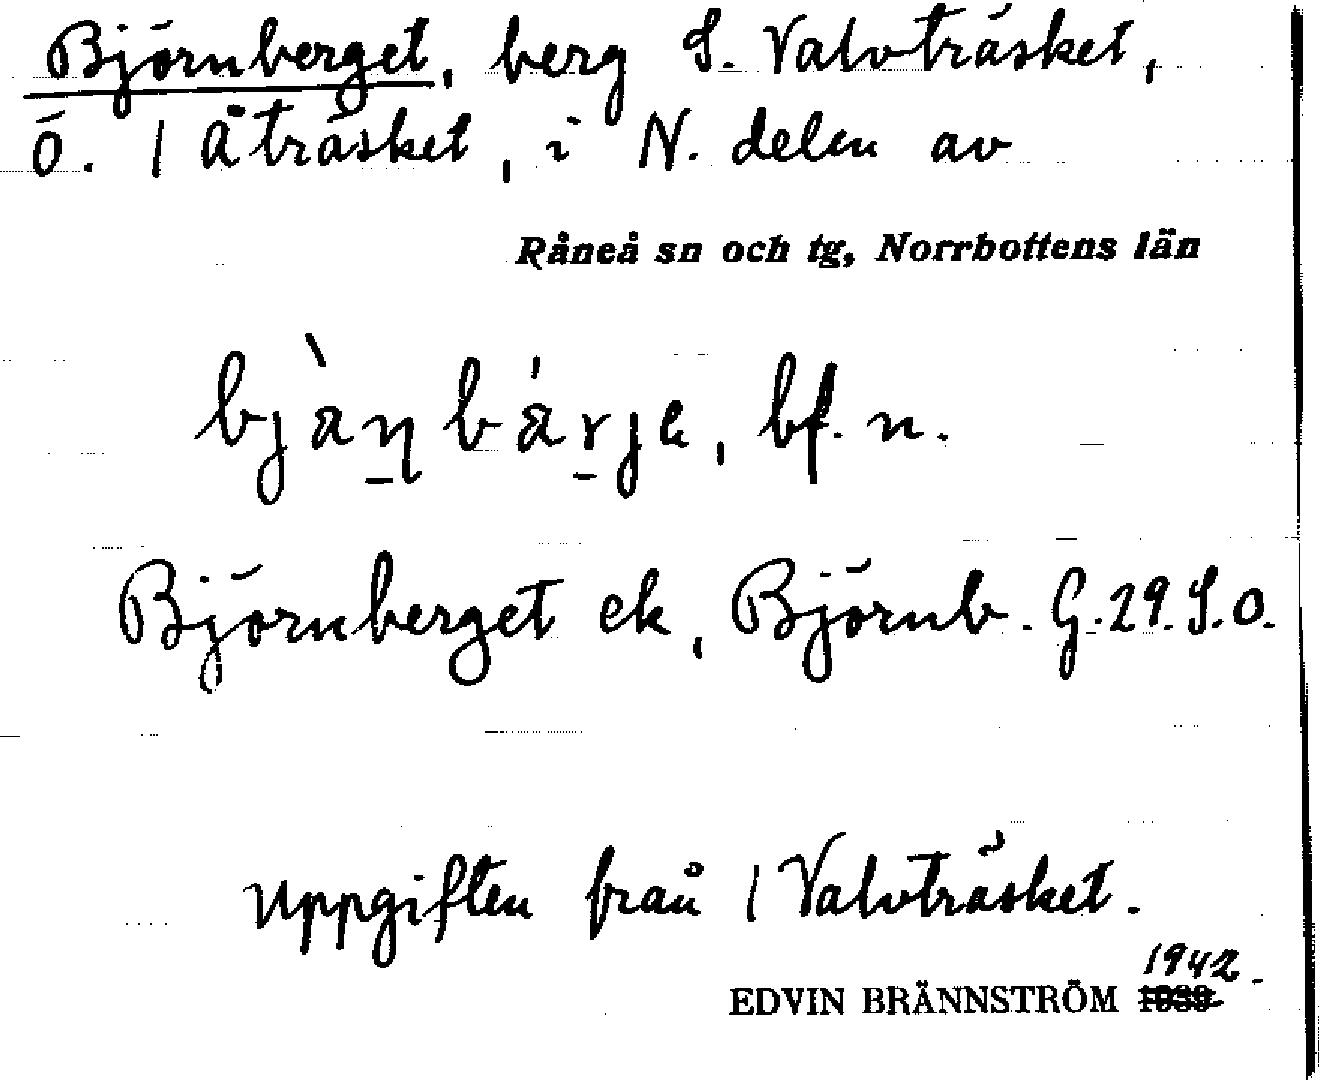 Björnberget, berg S. Valvträsket,
Ö. / Åträsket, i N. delen av
Råneå sn och tg, Norrbottens län
bjàn̲bárje, bf. n.
Björnberget ek, Björnb. G. 29. S.O.
Uppgiften från / Valvträsket.
1942
EDVIN BRÄNNSTRÖM 1939